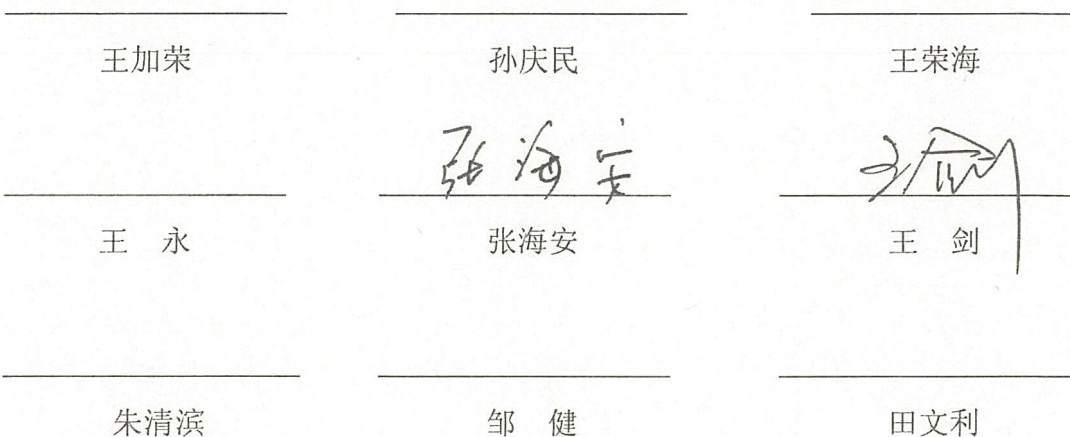 王加荣 孙庆民 王荣海
张海安 王剑
王 永 张海安 王 剑
朱清滨 邹 健 田文利